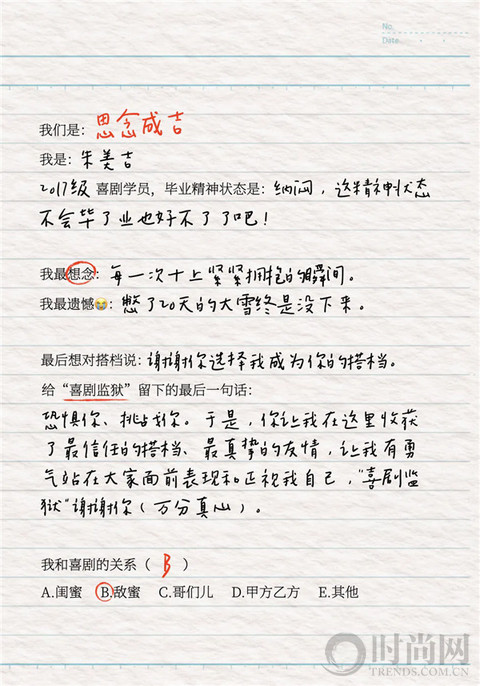 No.
Date
我们是：思念成吉
我是：朱美吉
2017级 喜剧学员，毕业精神状态是：纳闷，这精神状态
不会毕了业也好不了了吧！
我最想念：每一次十上紧紧拥抱的瞬间。
我最遗憾😭：憋了20天的大雪终是没下来。
最后想对搭档说：谢谢你选择我成为你的搭档。
给“喜剧监狱”留下的最后一句话：
恐惧你、挑战你。于是，你让我在这里收获
了最信任的搭档、最真挚的友情，让我有勇
气站在大家面前表现和正视我自己，“喜剧监
狱”谢谢你（万分真心）。
我和喜剧的关系（ B ）
A.闺蜜 B.敌蜜 C.哥们儿 D.甲方乙方 E.其他
时尚网
TRENDS.COM.CN